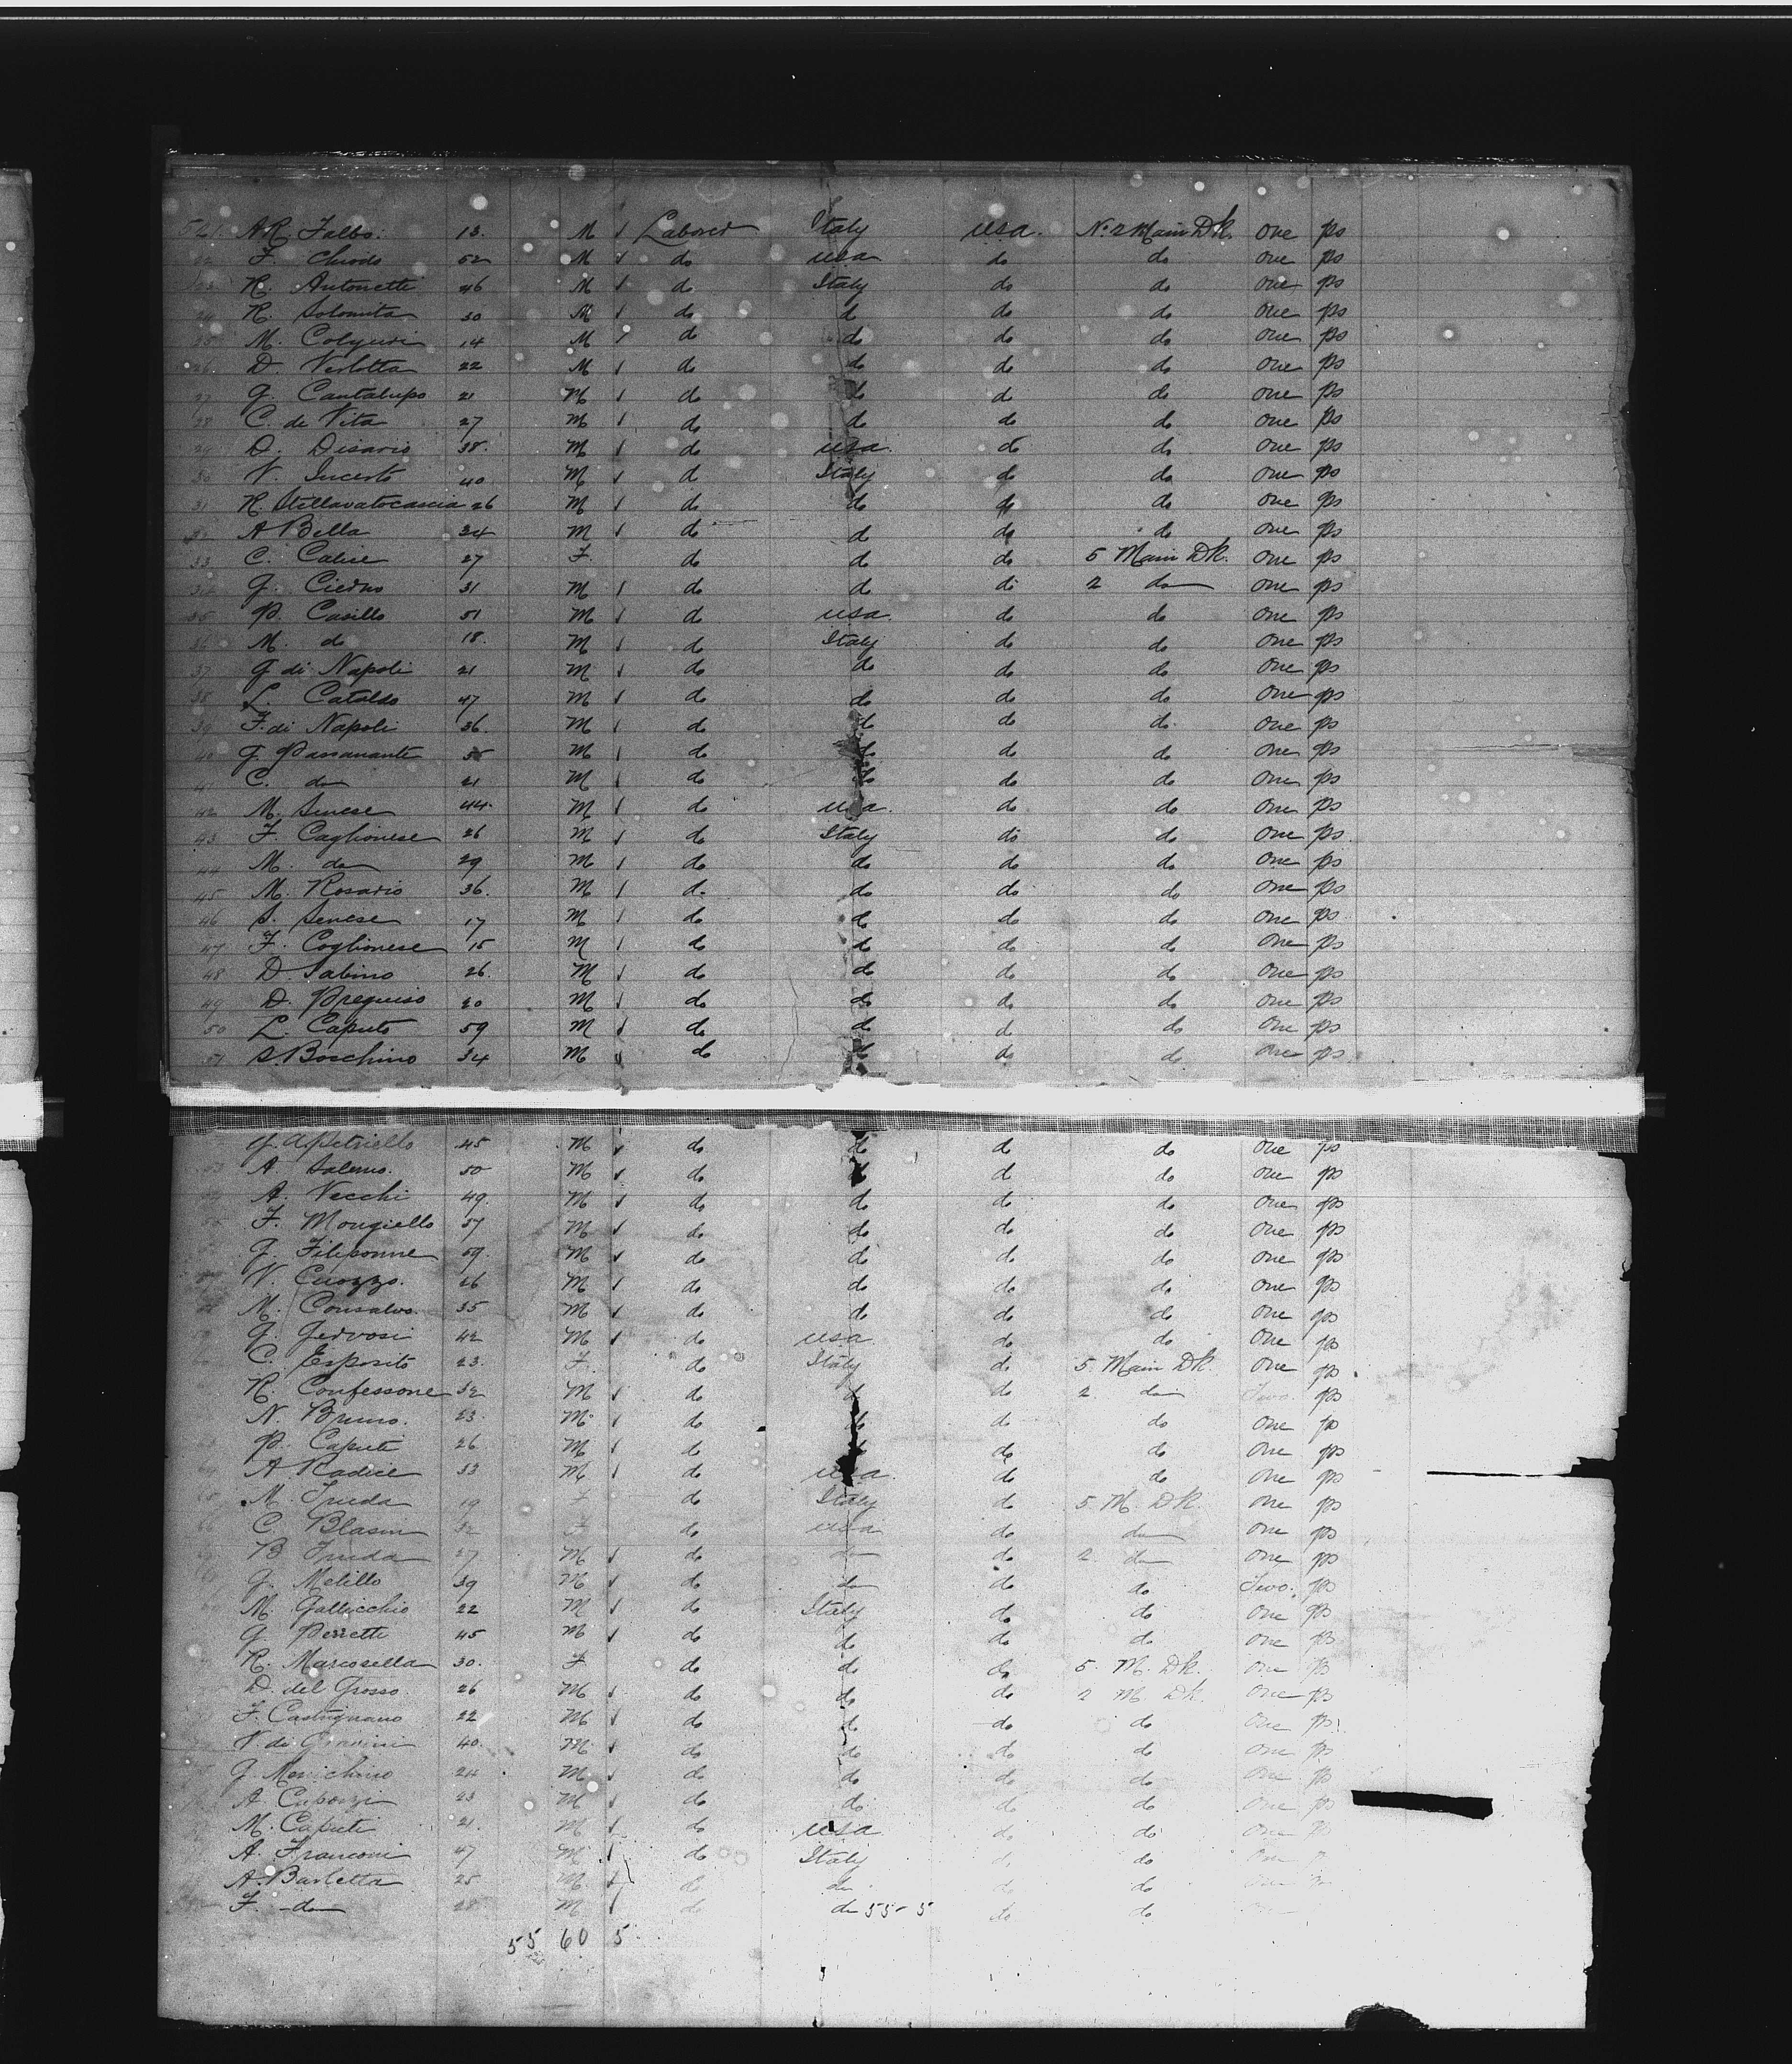 521. A R Falbo. 13. M Laborer Italy usa. No. 2 Main Dk. one ps
22 F. Chiodo 52 M do usa do do one ps
23 R. Antonetti 46 M do Italy do do one ps
24 R. Solomita 30 M do do do do one ps
25 M. 14 M do do do do one ps
26 D. Verlotta 22 M do do do do one ps
27 G. Cantalupo 21 M do do do do one ps
28 C. de Vita 27 M do do do do one ps
29 D. Disario 38. M do usa. do do one ps
30 V. Incerto 40 M do Italy do do one ps
31 R. Stellavatocascia 26 M do do do do one ps
32 A Bella 34 M do do do do one ps
33 C. Calise 27 F. do do do 5 Main Dk. one ps
34 G. Cierno 31 M do do do 2 do one ps
35 P. Casillo 51 M do usa. do do one ps
36 M. do 18. M do Italy do do one ps
37 G di Napoli 21 M do do do do one ps
38 L. Cataldo 47 M do do do do one ps
39 F. di Napoli 36. M do do do do one ps
40 G. Passanante M do do do do one ps
41 C. do 21 M do do do do one ps
42 M. Senese 44. M do usa. do do one ps
43 F. Caglionese 26 M do Italy do do one ps
44 M. do 29 M do do do do one ps
45 M. Rosario 36. M do do do do one ps
46 S. Senese 17 M do do do do one ps
47 F. Coglionese 15 M do do do do one ps
48 D. Sabino 26. M do do do do one ps
49 D. Preguiso 20 M do do do do one ps
50 L. Caputo 59 M do do do do one ps
51 S. Boschino 34 M do do do do one ps
G. Apetriello 45 M do do do do one ps
53 A. Salerno. 50 M do do do do one ps
A. Vecchi 49. M do do do do one ps
55 F. Mongiello 57 M do do do do one ps
G. Filiponne 59. M do do do do one ps
V. Cuozzo. 26 M do do do do one ps
M. Consalvo. 35 M do do do do one ps
G. Gervosi 42 M do usa do do one ps
C. Esposito 23. F. do Italy do 5 Main Dk. one ps
R. Confessone 32 M do do do 2 do Two. ps
N. Bruno. 23. M. do do do do one ps
P. Caputi 26 M do do do do one ps
64 A Radice 33 M do usa. do do one ps
65 M. Freda 19 F do Italy do 5 M. Dk. one ps
66 C. Blasin 32 F do usa do do one ps
B Freda 27 M do do do 2 do one ps
G. Melillo 39 M do do do do Two. ps
M. Gallicchio 22 M do Italy do do one ps
G Perretti 45 M do do do do one ps
R. Marcosella 30. F do do do 5. M. Dk. one ps
D. del Grosso. 26 M do do do 2 M. Dk. one ps
F. Castignano 22 M do do do do one ps
V. di 40. M do do do do one ps
G. Menichino 24 M. do do do do one ps
A. 23 M do do do do one ps
M. Caputi 21. M do usa do do one ps
A. Franconi 47 M do Italy do do one
A. Barletta 25 M do do do do one
F. do 28 M do do 55-5 do do one
55 60 5